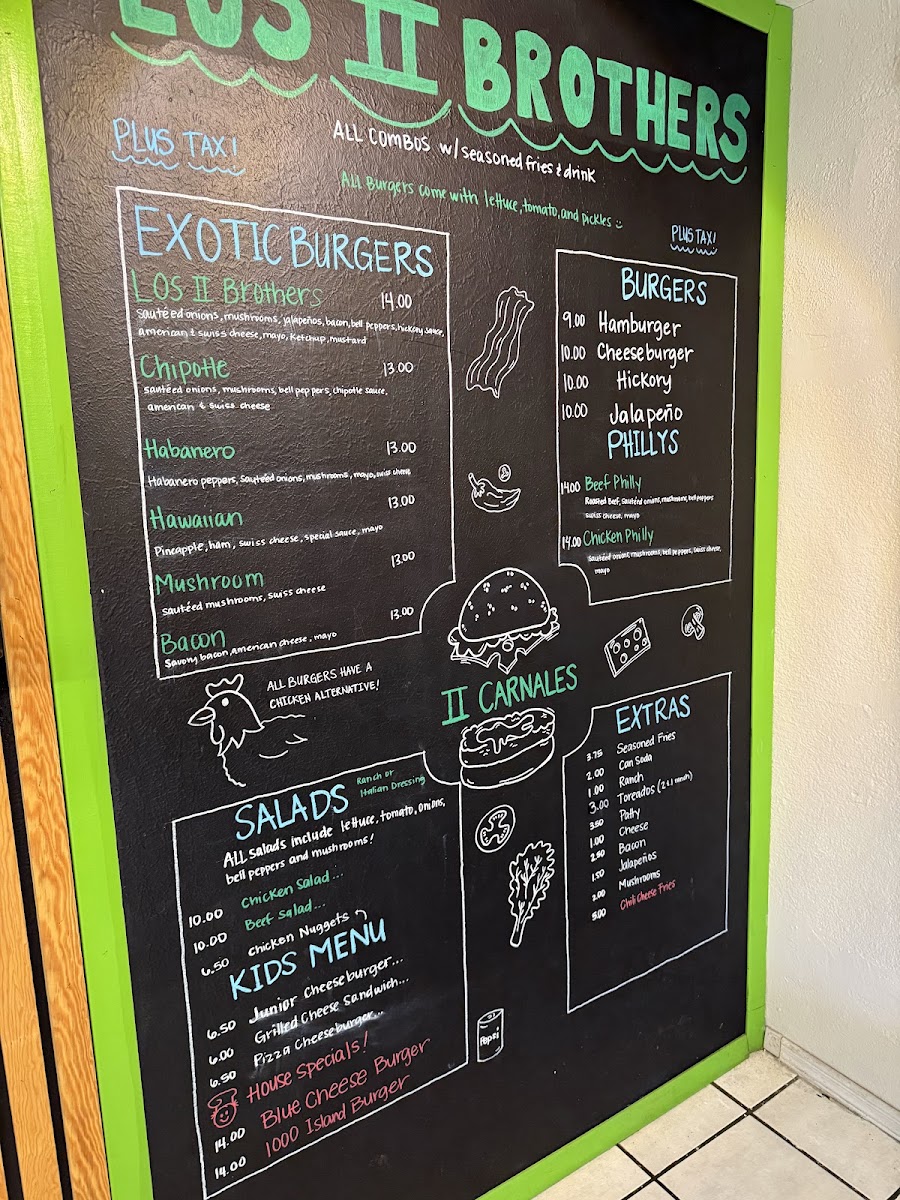 LOS II BROTHERS
PLUS TAX!
ALL COMBOS w/ seasoned fries & drink
All Burgers come with lettuce, tomato, and pickles :)
EXOTIC BURGERS
LOS II Brothers 14.00
sautéed onions, mushrooms, jalapeños, bacon, bell peppers, hickory sauce,
american & swiss cheese, mayo, ketchup, mustard
Chipotle 13.00
sautéed onions, mushrooms, bell peppers, chipotle sauce,
american & swiss cheese
Habanero 13.00
Habanero peppers, sautéed onions, mushrooms, mayo, swiss cheese
Hawaiian 13.00
Pineapple, ham, swiss cheese, special sauce, mayo
Mushroom 13.00
sautéed mushrooms, swiss cheese
Bacon 13.00
Savory bacon, american cheese, mayo
ALL BURGERS HAVE A
CHICKEN ALTERNATIVE!
PLUS TAX!
BURGERS
9.00 Hamburger
10.00 Cheeseburger
10.00 Hickory
10.00 Jalapeño
PHILLYS
14.00 Beef Philly
Roasted Beef, sautéed onions, mushrooms, bell peppers
swiss cheese, mayo
14.00 Chicken Philly
sautéed onions, mushrooms, bell peppers, swiss cheese,
mayo
II CARNALES
SALADS
Ranch or
Italian Dressing
ALL salads include lettuce, tomato, onions,
bell peppers and mushrooms!
10.00 Chicken Salad...
10.00 Beef Salad...
6.50 Chicken Nuggets
KIDS MENU
6.50 Junior Cheeseburger...
6.00 Grilled Cheese Sandwich...
6.50 Pizza Cheeseburger...
House Specials!
14.00 Blue Cheese Burger
14.00 1000 Island Burger
EXTRAS
3.75 Seasoned Fries
2.00 Can Soda
1.00 Ranch
3.00 Toreados
3.50 Patty
1.00 Cheese
2.50 Bacon
1.50 Jalapeños
2.00 Mushrooms
5.00 Chili Cheese Fries
Pepsi